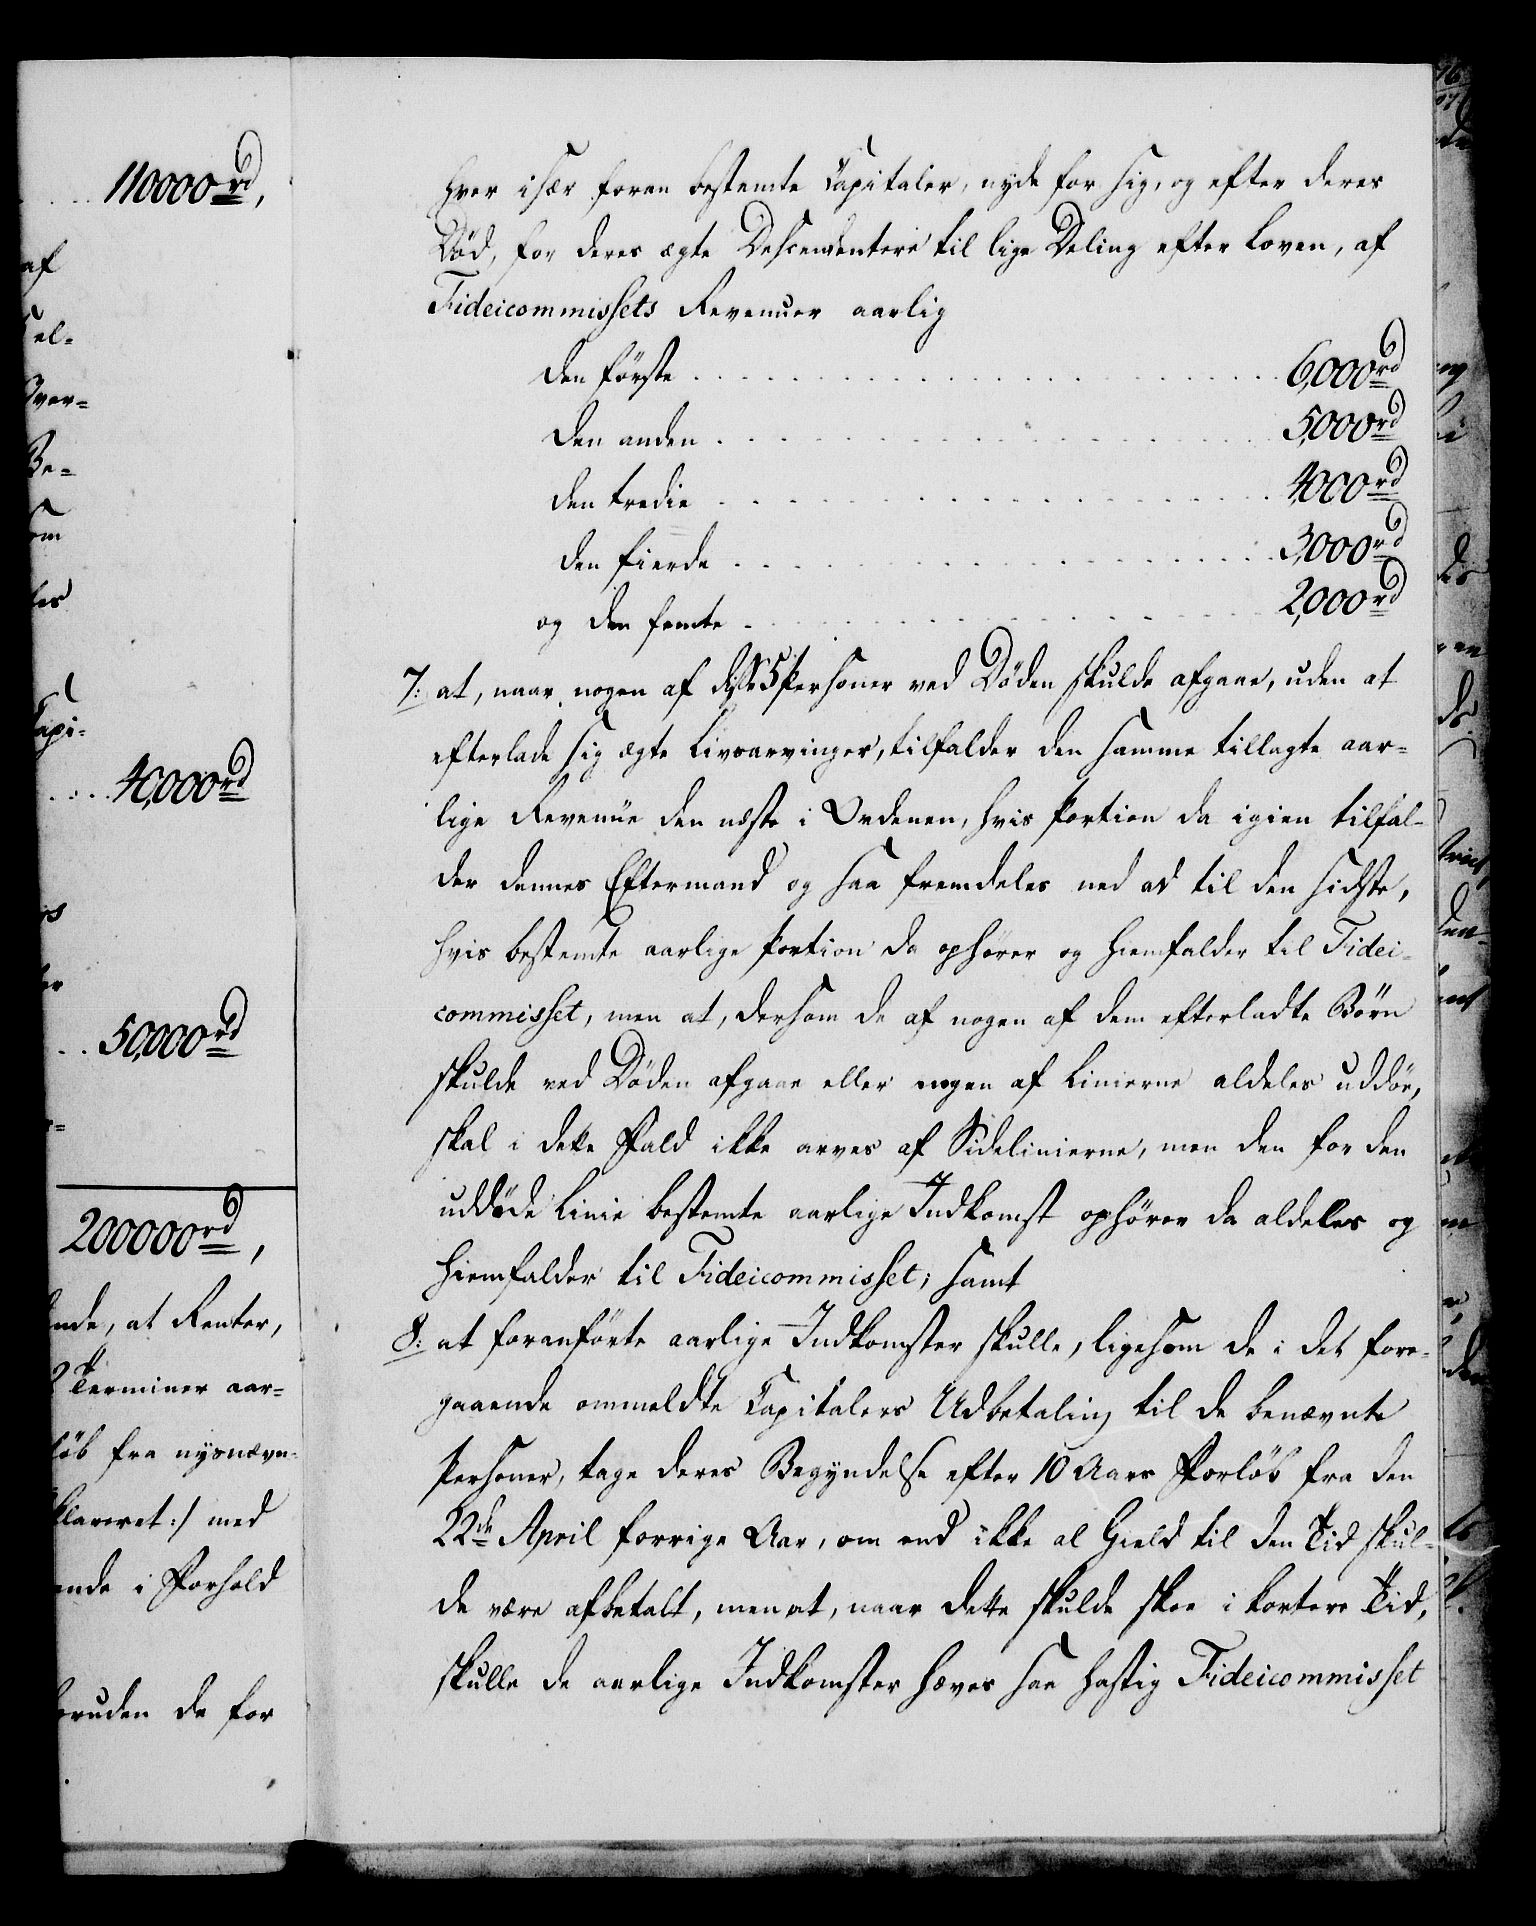 110000 rd,
af
el-
Be-
om
Capi-
40,000 rd
50,000 rd
200000 rd,
ende, at Renter,
2 Terminer aar-
løb fra nysnævn-
klareret:/ med
ende i Forhold
oruden de for
hver især foran bestemte Capitaler, nyde for sig, og efter deres
Död, for deres ægte Descendentere til lige Deling efter Loven, af
Fideicommissets Revenuer aarlig
den förste . . . . . . . . . . 6,000 rd
den anden . . . . . . . . . . 5,000 rd
den tredie . . . . . . . . . . 4,000 rd
den fierde . . . . . . . . . . 3,000 rd
og den femte . . . . . . . . . . 2,000 rd
7: at, naar nogen af disse 5 Personer ved Döden skulde afgaae, uden at
efterlade sig ægte Livsarvinger, tilfalder den samme tillagte aar-
lige Revenüe den næste i Ordenen, hvis Portion da igien tilfal-
der dennes Eftermand og saa fremdeles ned ad til den sidste,
hvis bestemte aarlige Portion da ophører og hiemfalder til Fidei-
commisset, men at, dersom de af nogen af dem efterladte Börn
skulde ved Döden afgaae eller nogen af Linierne aldeles uddöe,
skal i dette Fald ikke arves af Sidelinierne, men den for den
uddöde Linie bestemte aarlige Indkomst ophörer da aldeles og
hiemfalder til Fideicommisset; samt
8: at foranförte aarlige Indkomster skulle, ligesom de i det fore-
gaaende ommeldte Capitalers Udbetaling til de benævnte
Personer, tage deres Begyndelse efter 10 Aars Forlöb fra den
22de April forrige Aar, om end ikke al Gield til den Tid skul-
de være afbetalt, men at, naar dette skulde skee i kortere Tid,
skulle de aarlige Indkomster hæves saa hastig Fideicommisset